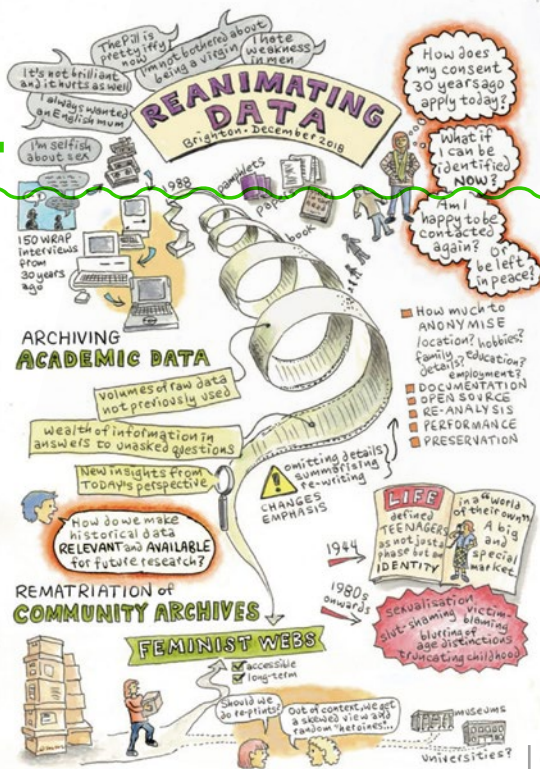 The Pill is
pretty iffy
now
I'm not bothered about
being a virgin
I hate
weakness
in men
It's not brilliant
and it hurts as well
I always wanted
an English mum
I'm selfish
about sex
REANIMATING
DATA
Brighton • December 2018
How does
my consent
30 years ago
apply today?
What if
I can be
identified
NOW?
Am I
happy to be
contacted
again?
Or
be left
in peace?
1988
pamphlets
papers
book
150 WRAP
interviews
from
30 years
ago
ARCHIVING
ACADEMIC DATA
volumes of raw data
not previously used
wealth of information in
answers to unasked questions
New insights from
TODAY's perspective
How much to
ANONYMISE
location? hobbies?
family details? education?
employment?
DOCUMENTATION
OPEN SOURCE
RE-ANALYSIS
PERFORMANCE
PRESERVATION
omitting details
summarising
re-writing
CHANGES
EMPHASIS
How do we make
historical data
RELEVANT and AVAILABLE
for future research?
1944
LIFE
defined
TEENAGERS
as not just a
phase but an
IDENTITY
in a "world
of their own"
A big
and
special
market
1980s
onwards
sexualisation, victim-
slut-shaming blaming
blurring of
age distinctions
truncating childhood
REMATRIATION of
COMMUNITY ARCHIVES
FEMINIST WEBS
accessible
long-term
Should we
do re-prints?
Out of context, we get
a skewed view and
random "heroines"...
museums
universities?